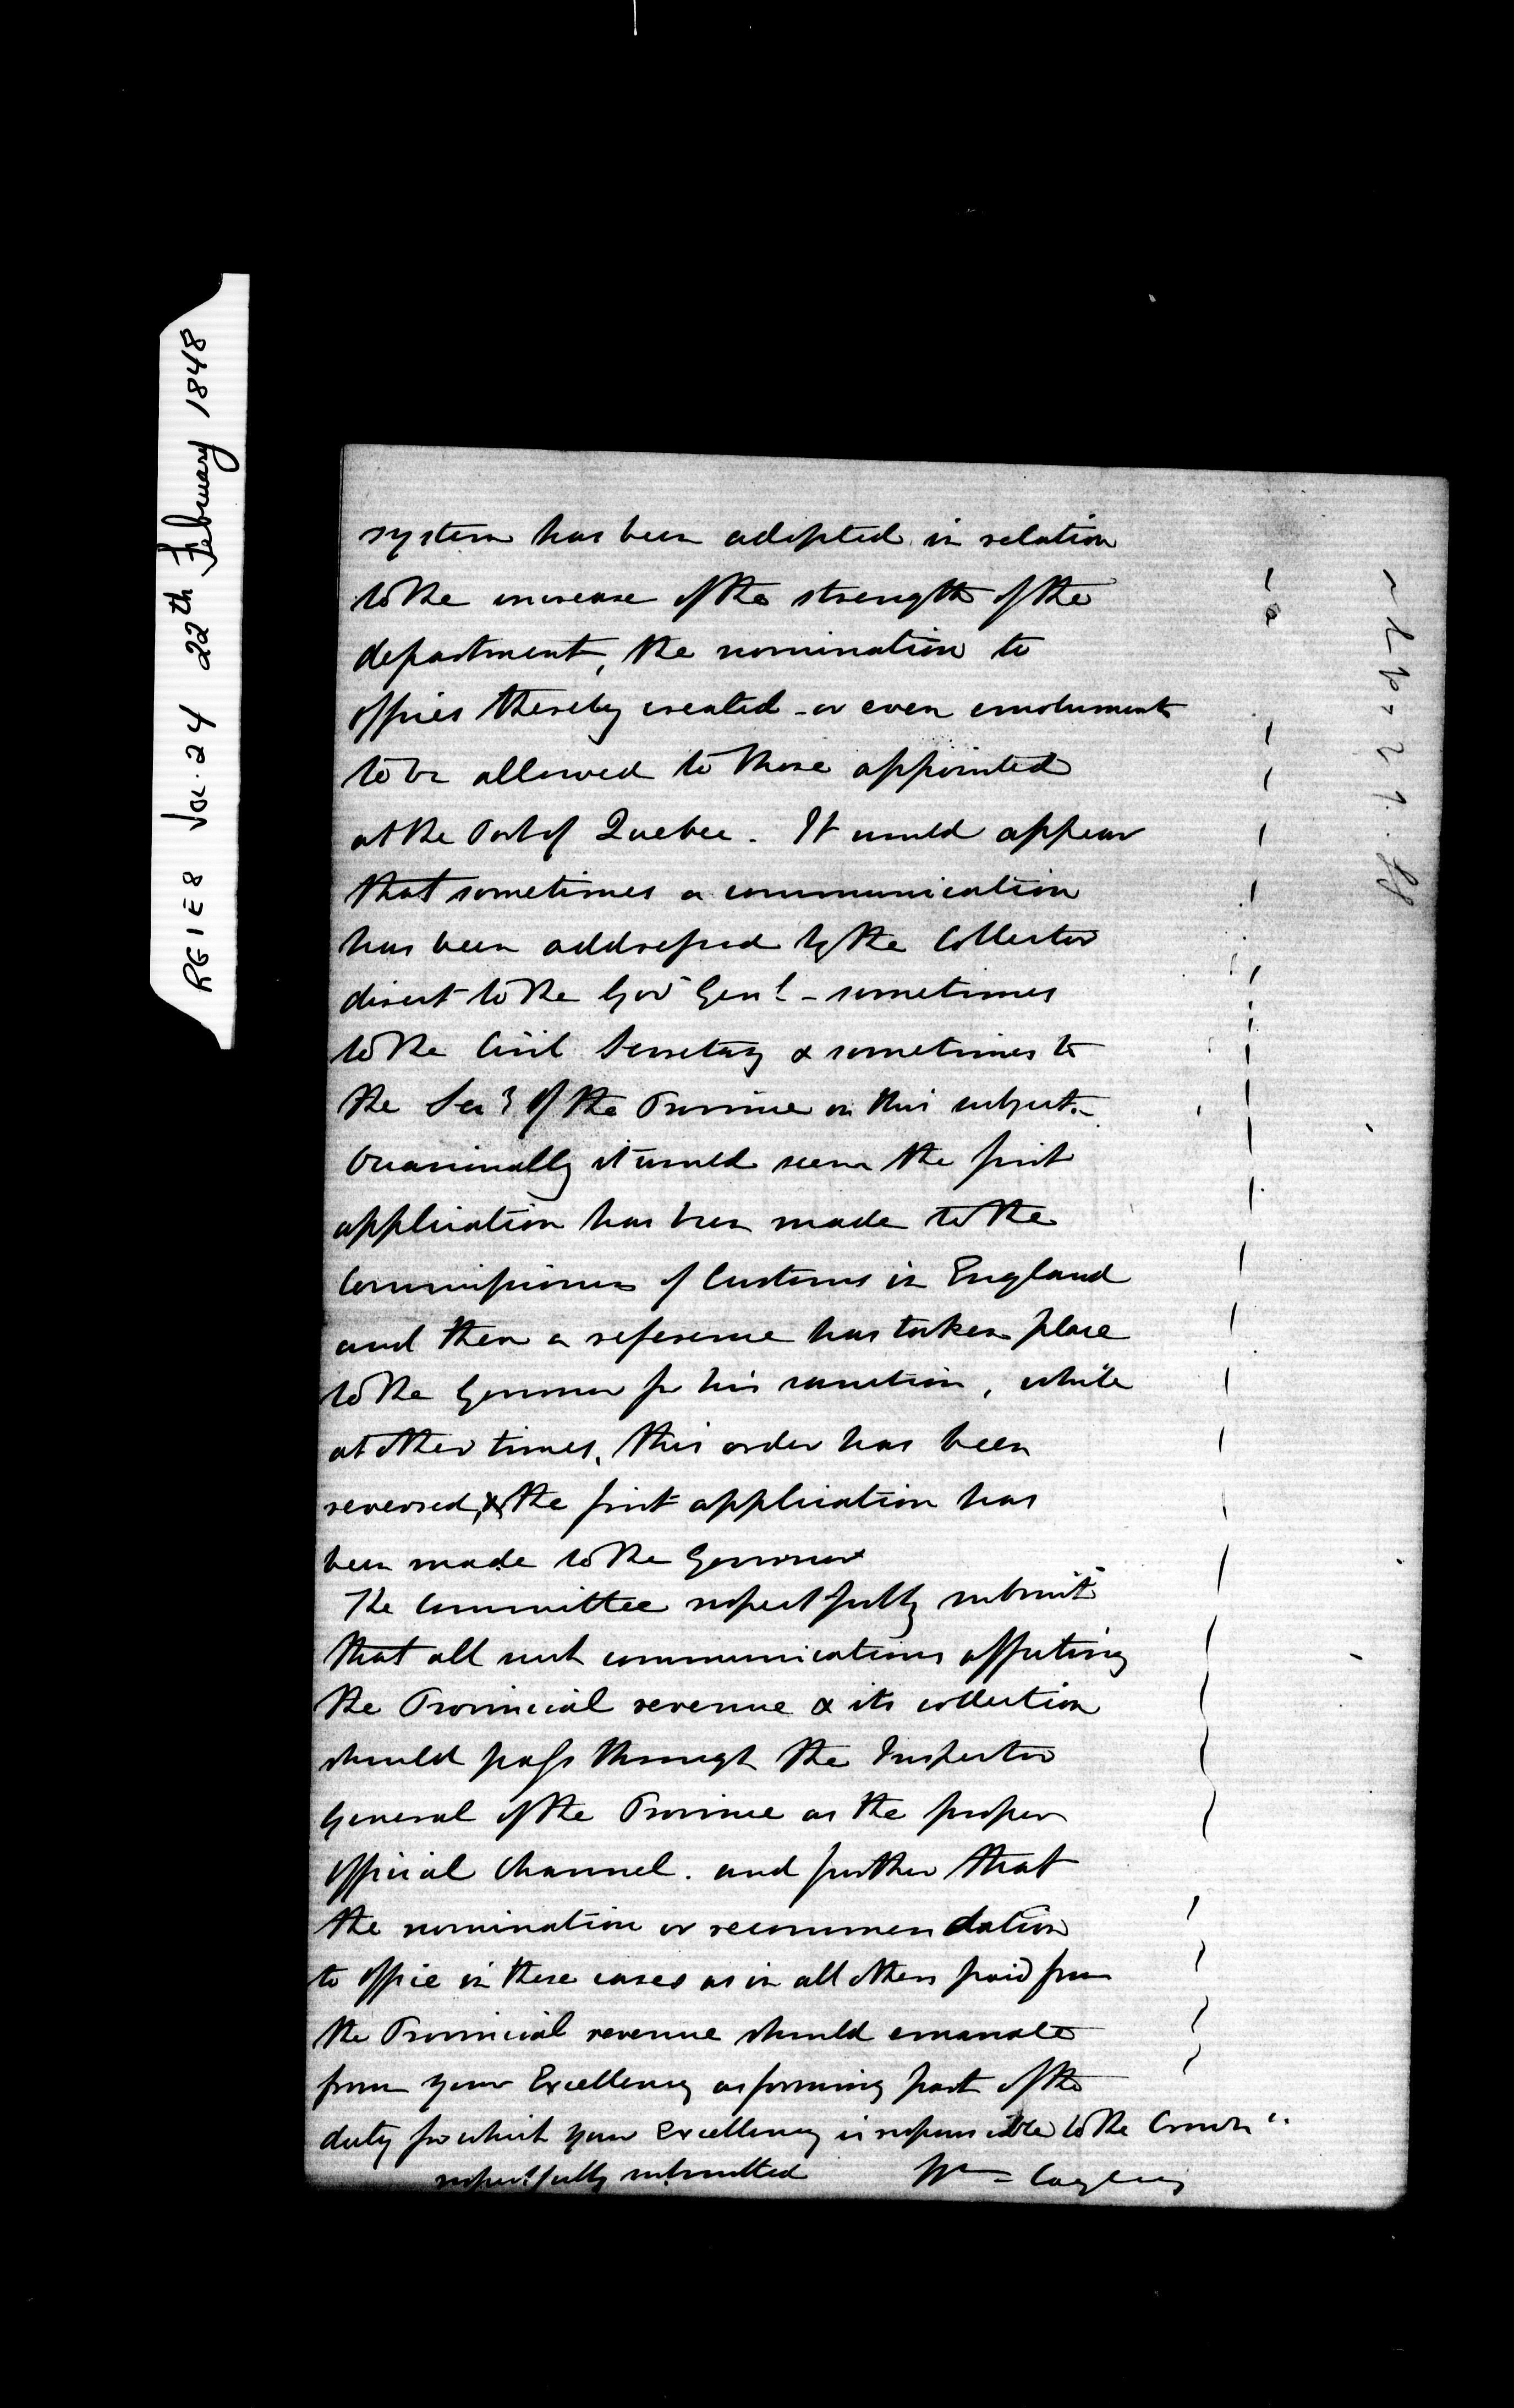 RG 1 E 8 Vol. 24 22th February 1848
system has been adopted in relation
to the increase of the strength of the
department, the nomination to
offices thereby created - or even emoluments
to be allowed to those appointed
at the Port of Quebec. It would appear
that sometimes a communication
has been addressed by the Collector
direct to the Gov Genl - sometimes
to the Civil Secretary & sometimes to
the Secy of the Province on this subject.
Occasionally it would seem the first
application has been made to the
Commissioners of Customs in England
and then a reference has taken place
to the Governor for his sanction, while
at other times, this order has been
reversed, & the first application has
been made to the Governor
The Committee respectfully submit
that all such communications affecting
the Provincial revenue & its collection
should pass through the Inspector
General of the Province as the proper
official channel. and further that
the nomination or recommendation
to office in these cases as in all others paid from
the Provincial revenue should emanate
from your Excellency as forming part of the
duty for which your Excellency is responsible to the Crown"
respectfully submitted Wm Cayley